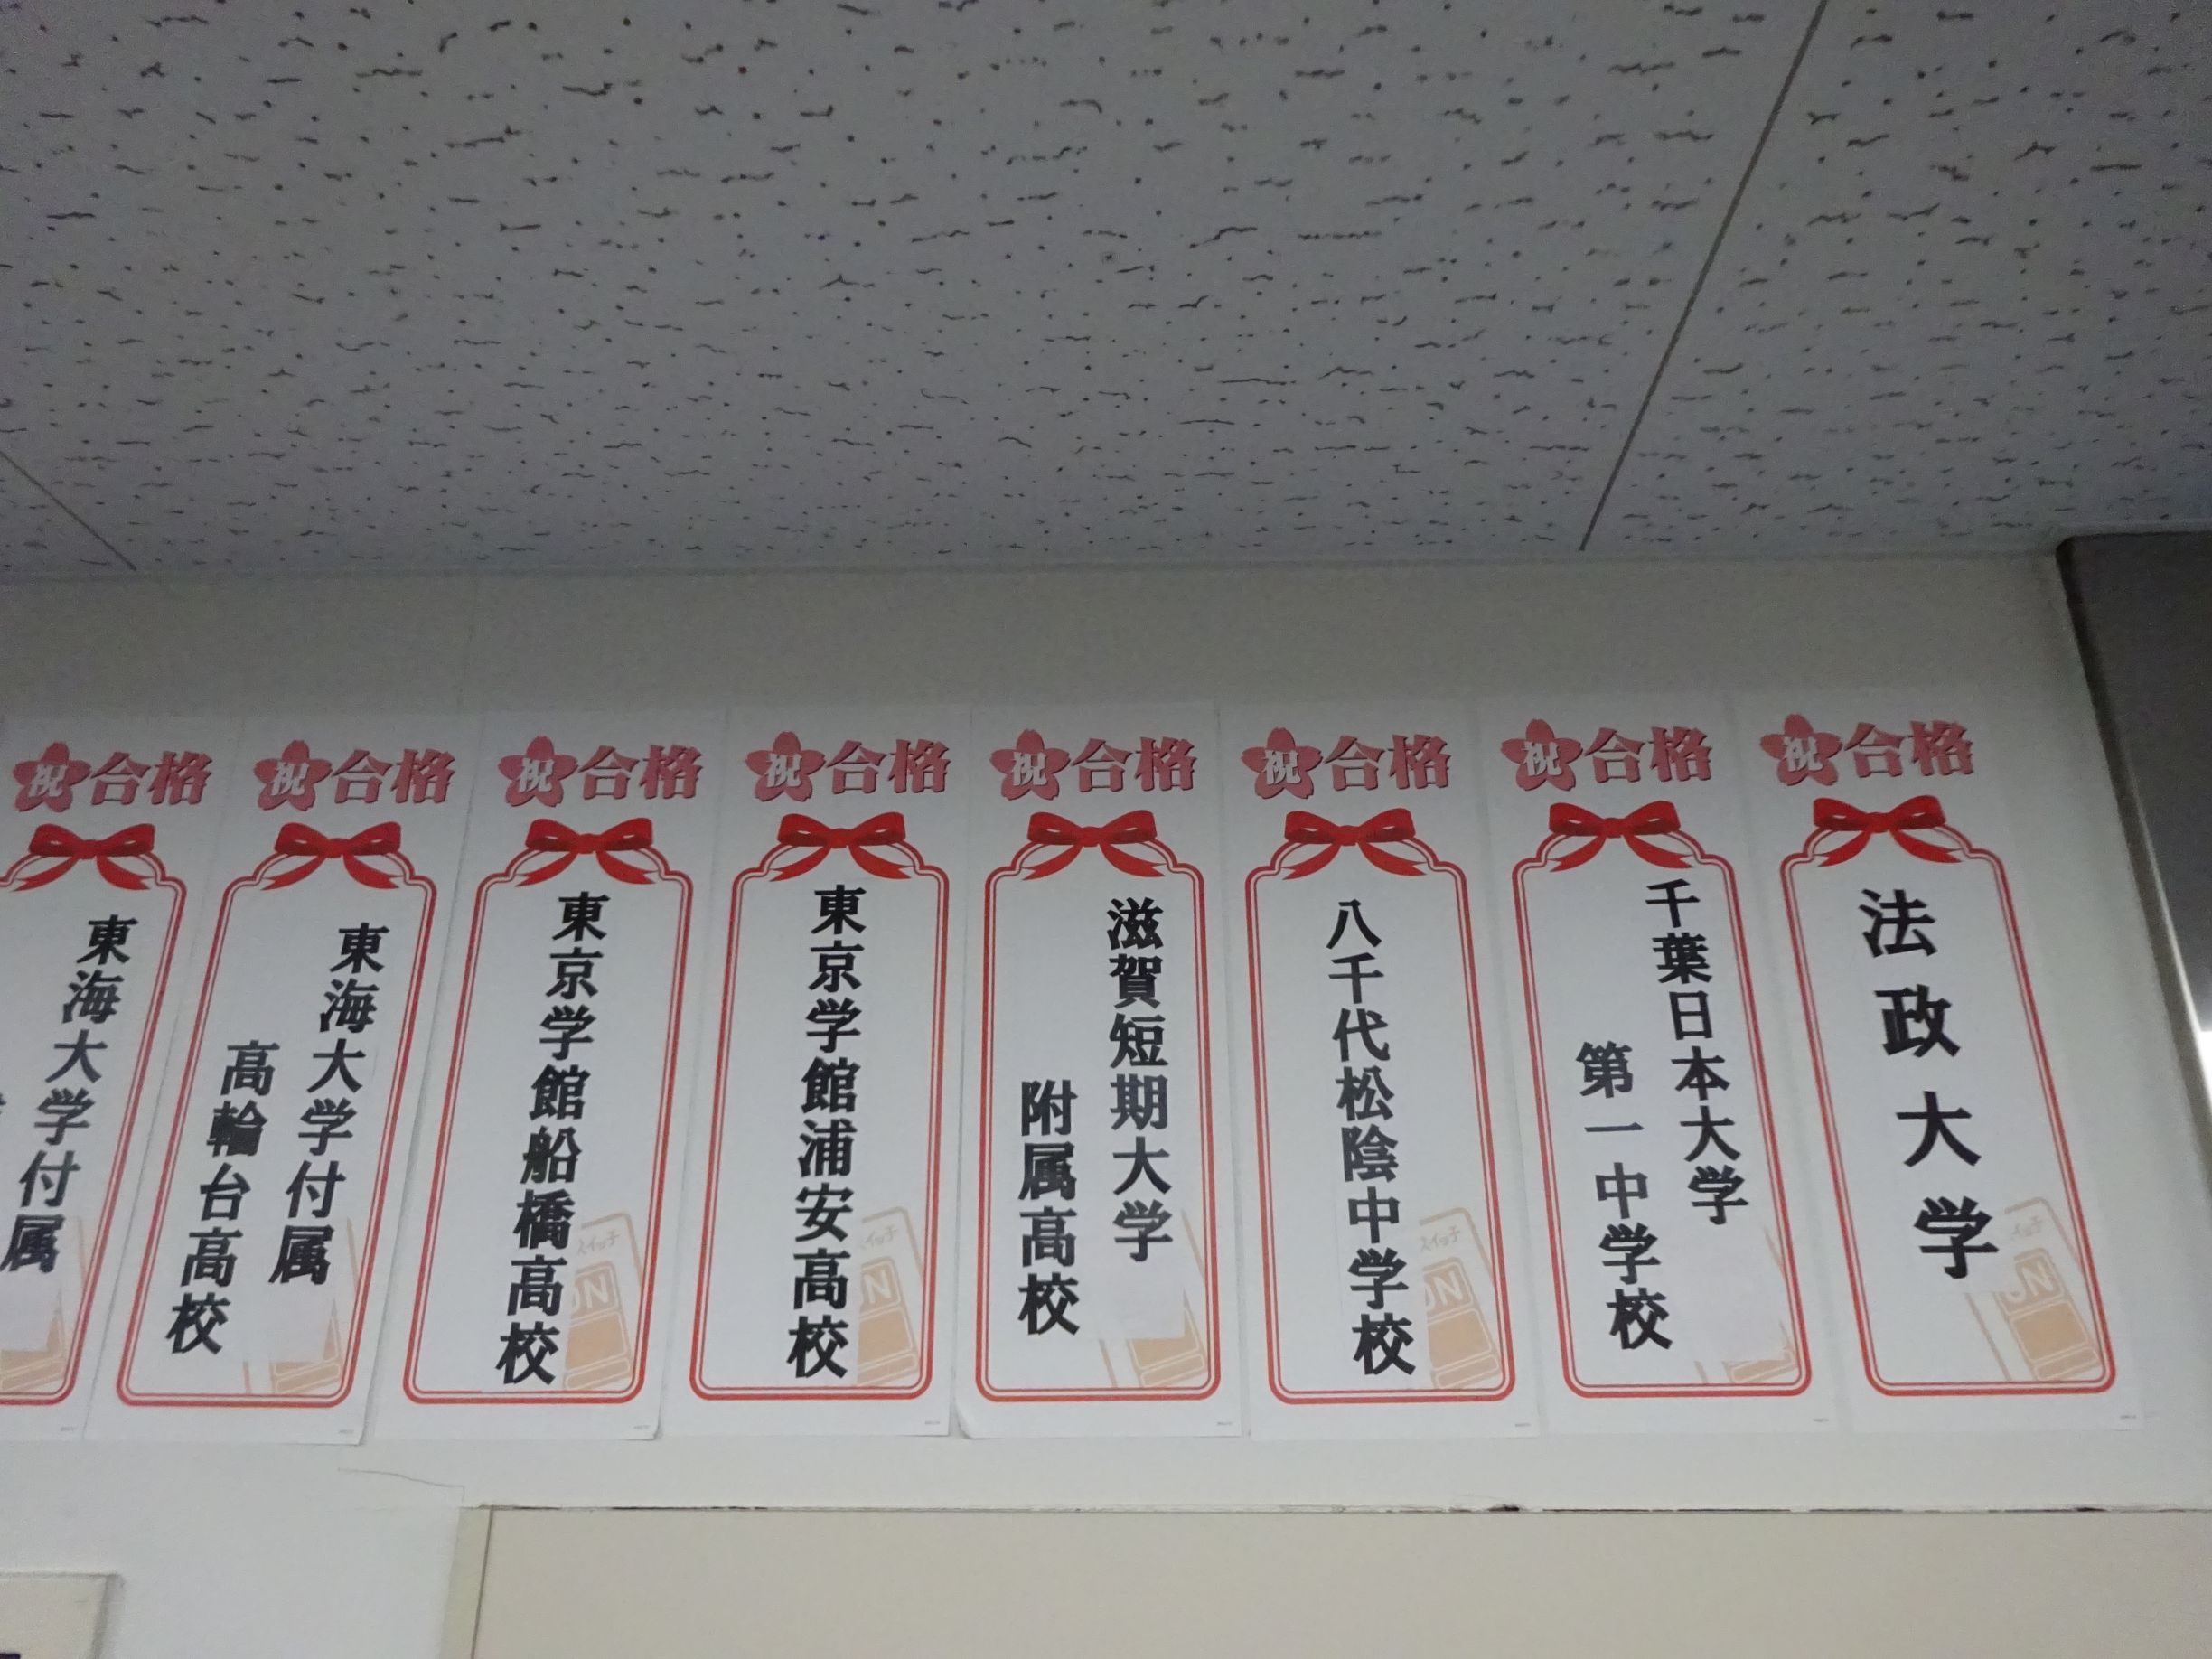 祝合格
法政大学
祝合格
千葉日本大学
第一中学校
祝合格
八千代松陰中学校
祝合格
滋賀短期大学
附属高校
祝合格
東京学館浦安高校
祝合格
東京学館船橋高校
祝合格
東海大学付属
高輪台高校
祝合格
東海大学付属